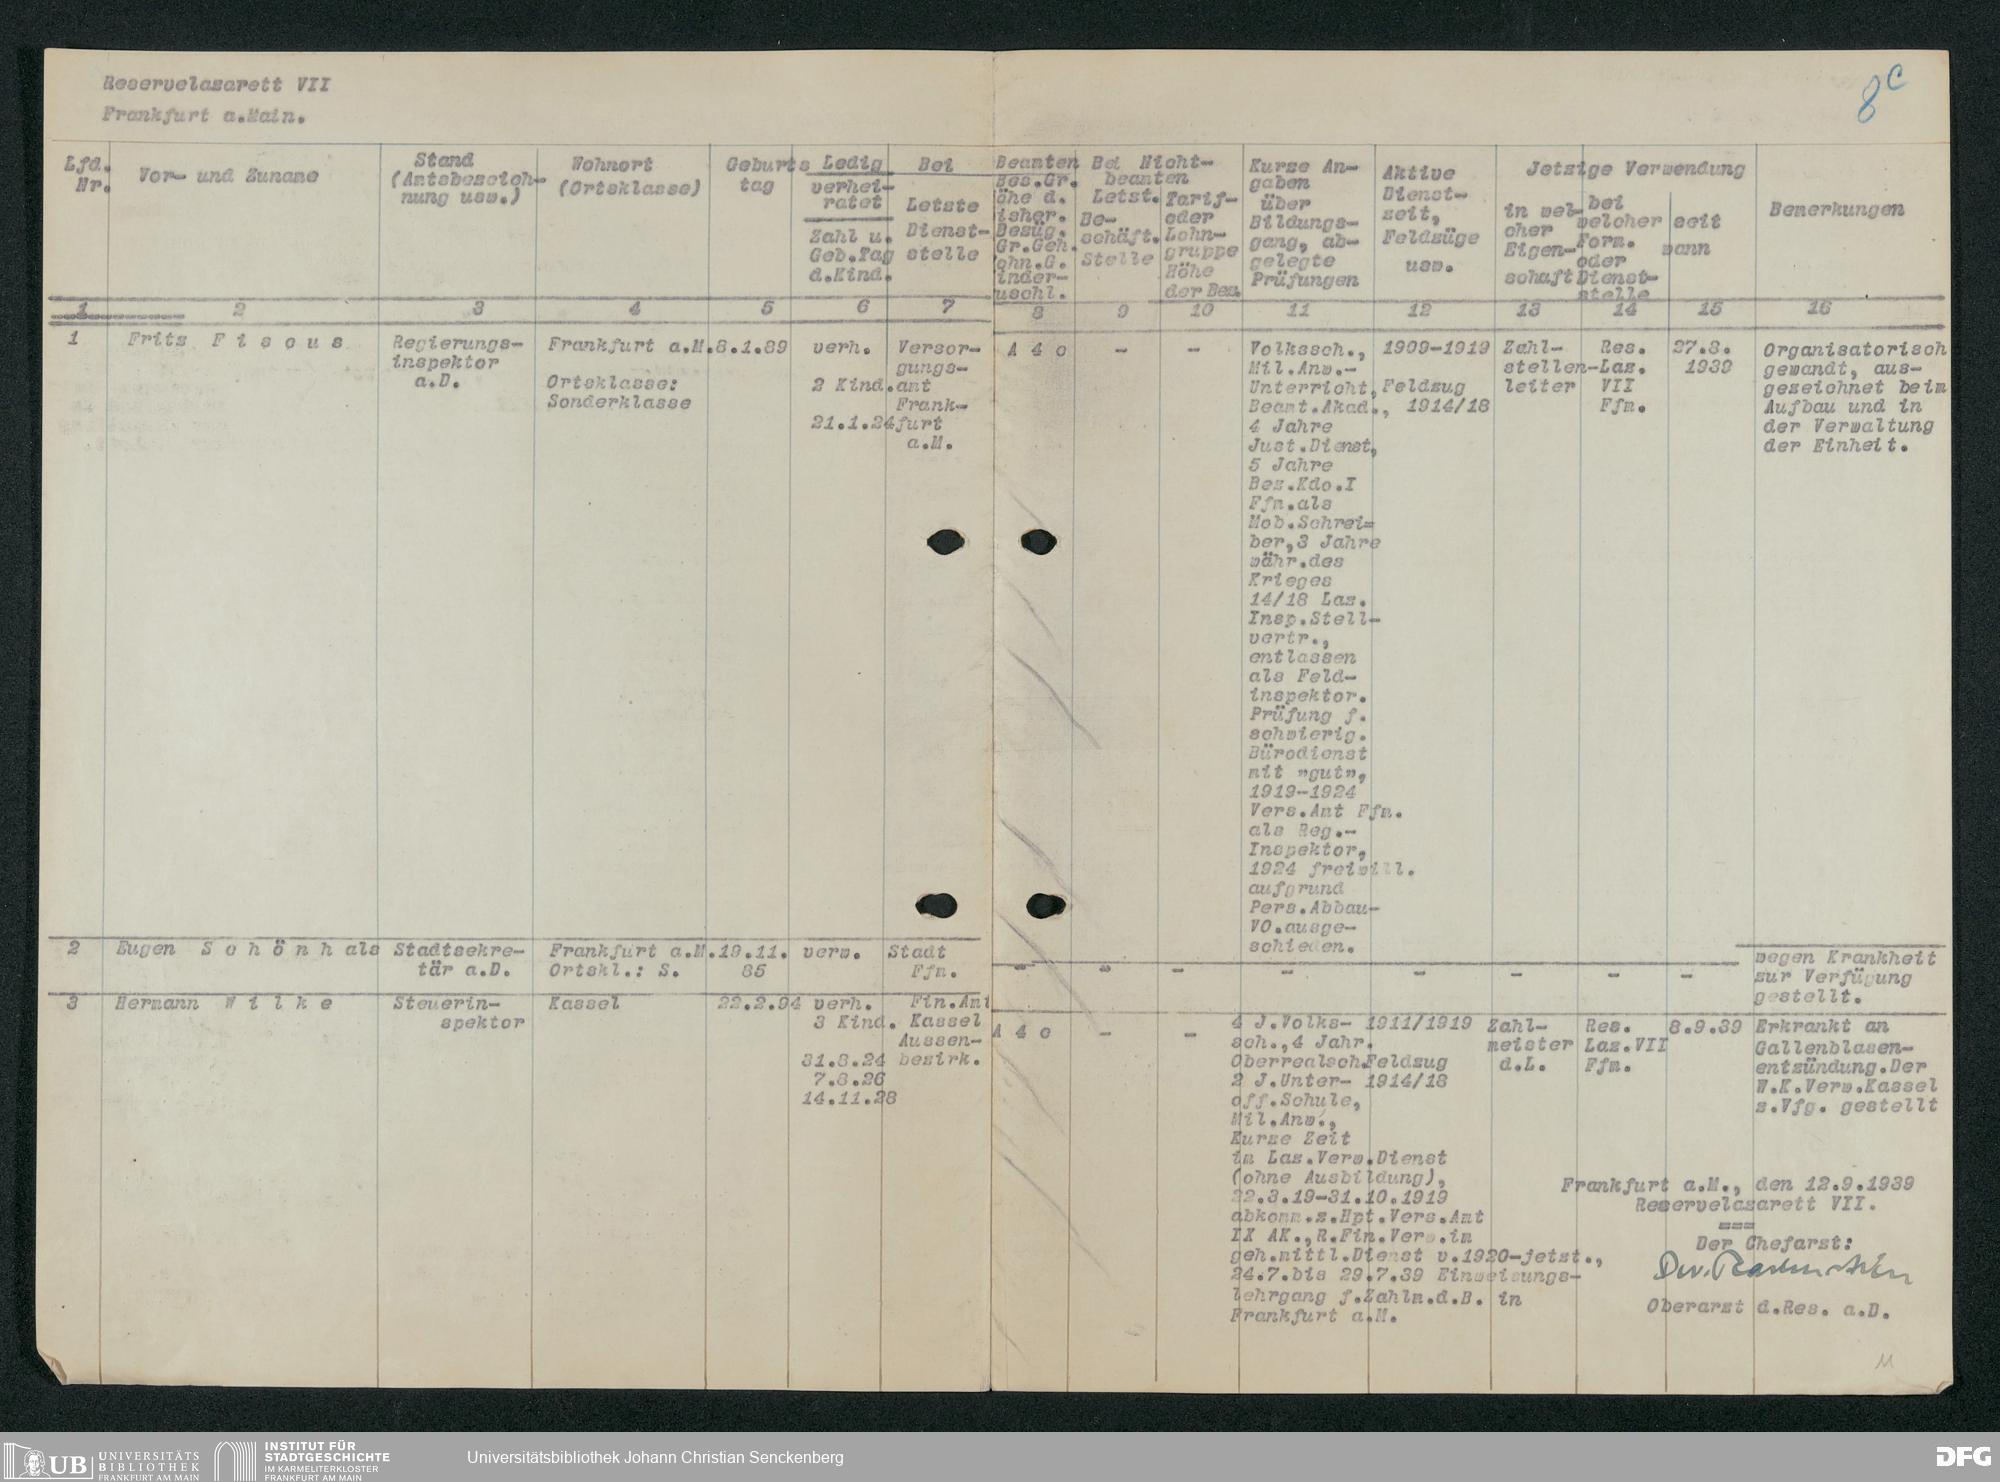 Reservelazarett VII
Frankfurt a.Main.
8c
Lfd.
Nr.
Vor- und Zuname
Stand
(Amtsbezeich-
nung usw.)
Wohnort
(Ortsklasse)
Geburts
tag
Ledig
verhei-
ratet
Zahl u.
Geb.Tag
d.Kind.
Bei
Letzte
Dienst-
stelle
Beamten
Bes.Gr.
öhe d.
isher.
Bezüg.
Gr.Geh.
ohn.G.
inder-
uschl.
Bei Nicht-
beamten
Letzt.
Be-
schäft.
Stelle
Tarif-
oder
Lohn-
gruppe
Höhe
der Bez.
Kurze An-
gaben
über
Bildungs-
gang, ab-
gelegte
Prüfungen
Aktive
Dienst-
zeit,
Feldzüge
usw.
Jetzige Verwendung
in wel-
cher
Eigen-
schaft
bei
welcher
Form.
oder
Dienst-
stelle
seit
wann
Bemerkungen
1 2 3 4 5 6 7 8 9 10 11 12 13 14 15 16
1
Fritz F i s c u s
Regierungs-
inspektor
a.D.
Frankfurt a.M.
Ortsklasse:
Sonderklasse
8.1.89
verh.
2 Kind.
21.1.24
Versor-
gungs-
amt
Frank-
furt
a.M.
A 4 c
-
-
Volkssch.,
Mil.Anw.-
Unterricht,
Beamt.Akad.,
4 Jahre
Just.Dienst,
5 Jahre
Bez.Kdo.I
Ffm.als
Mob.Schrei=
ber,3 Jahre
währ.des
Krieges
14/18 Laz.
Insp.Stell-
vertr.,
entlassen
als Feld-
inspektor.
Prüfung f.
schwierig.
Bürodienst
mit "gut",
1919-1924
Vers.Amt Ffm.
als Reg.-
Inspektor,
1924 freiwill.
aufgrund
Pers.Abbau-
VO.ausge-
schieden.
1909-1919
Feldzug
1914/18
Zahl-
stellen-
leiter
Res.
Laz.
VII
Ffm.
27.8.
1939
Organisatorisch
gewandt, aus-
gezeichnet beim
Aufbau und in
der Verwaltung
der Einheit.
2
Eugen S c h ö n h als
Stadtsekre-
tär a.D.
Frankfurt a.M.
Ortskl.: S.
19.11.
85
verw.
Stadt
Ffm.
- - - - - - - -
wegen Krankheit
zur Verfügung
gestellt.
3
Hermann W i l k e
Steuerin-
spektor
Kassel
22.2.94
verh.
3 Kind.
31.8.24
7.8.26
14.11.28
Fin.Amt
Kassel
Aussen-
bezirk.
A 4 c
-
-
4 J.Volks-
sch.,4 Jahr.
Oberrealsch.
2 J.Unter-
off.Schule,
Mil.Anw.,
Kurze Zeit
im Laz.Verw.Dienst
(ohne Ausbildung),
22.3.19-31.10.1919
abkomm.z.Hpt.Vers.Amt
IX AK.,R.Fin.Verw.im
geh.mittl.Dienst v.1920-jetzt.,
24.7.bis 29.7.39 Einweisungs-
lehrgang f.Zahlm.d.B. in
Frankfurt a.M.
1911/1919
Feldzug
1914/18
Zahl-
meister
d.L.
Res.
Laz.VII
Ffm.
8.9.39
Erkrankt an
Gallenblasen-
entzündung.Der
W.K.Verw.Kassel
z.Vfg. gestellt
Frankfurt a.M., den 12.9.1939
Reservelazarett VII.
===
Der Chefarzt:
Oberarzt d.Res. a.D.
UB UNIVERSITÄTS
BIBLIOTHEK
FRANKFURT AM MAIN
INSTITUT FÜR
STADTGESCHICHTE
IM KARMELITERKLOSTER
FRANKFURT AM MAIN
Universitätsbibliothek Johann Christian Senckenberg
DFG